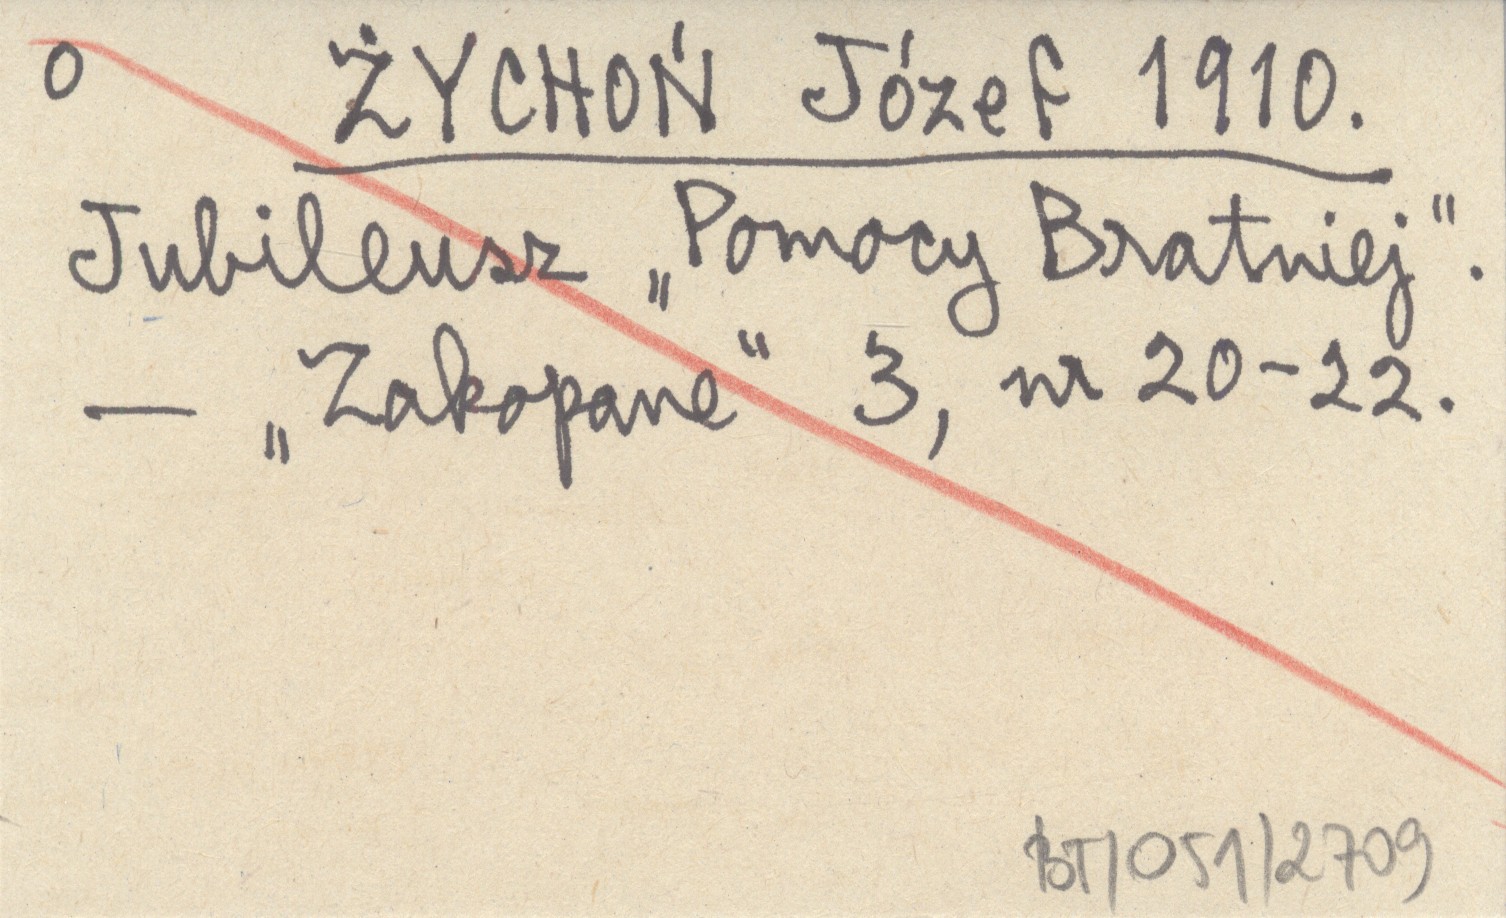 0 ŻYCHOŃ Józef 1910.
Jubileusz „Pomocy Bratniej".
— „Zakopane" 3, nr 20-22.
BT/051/2709